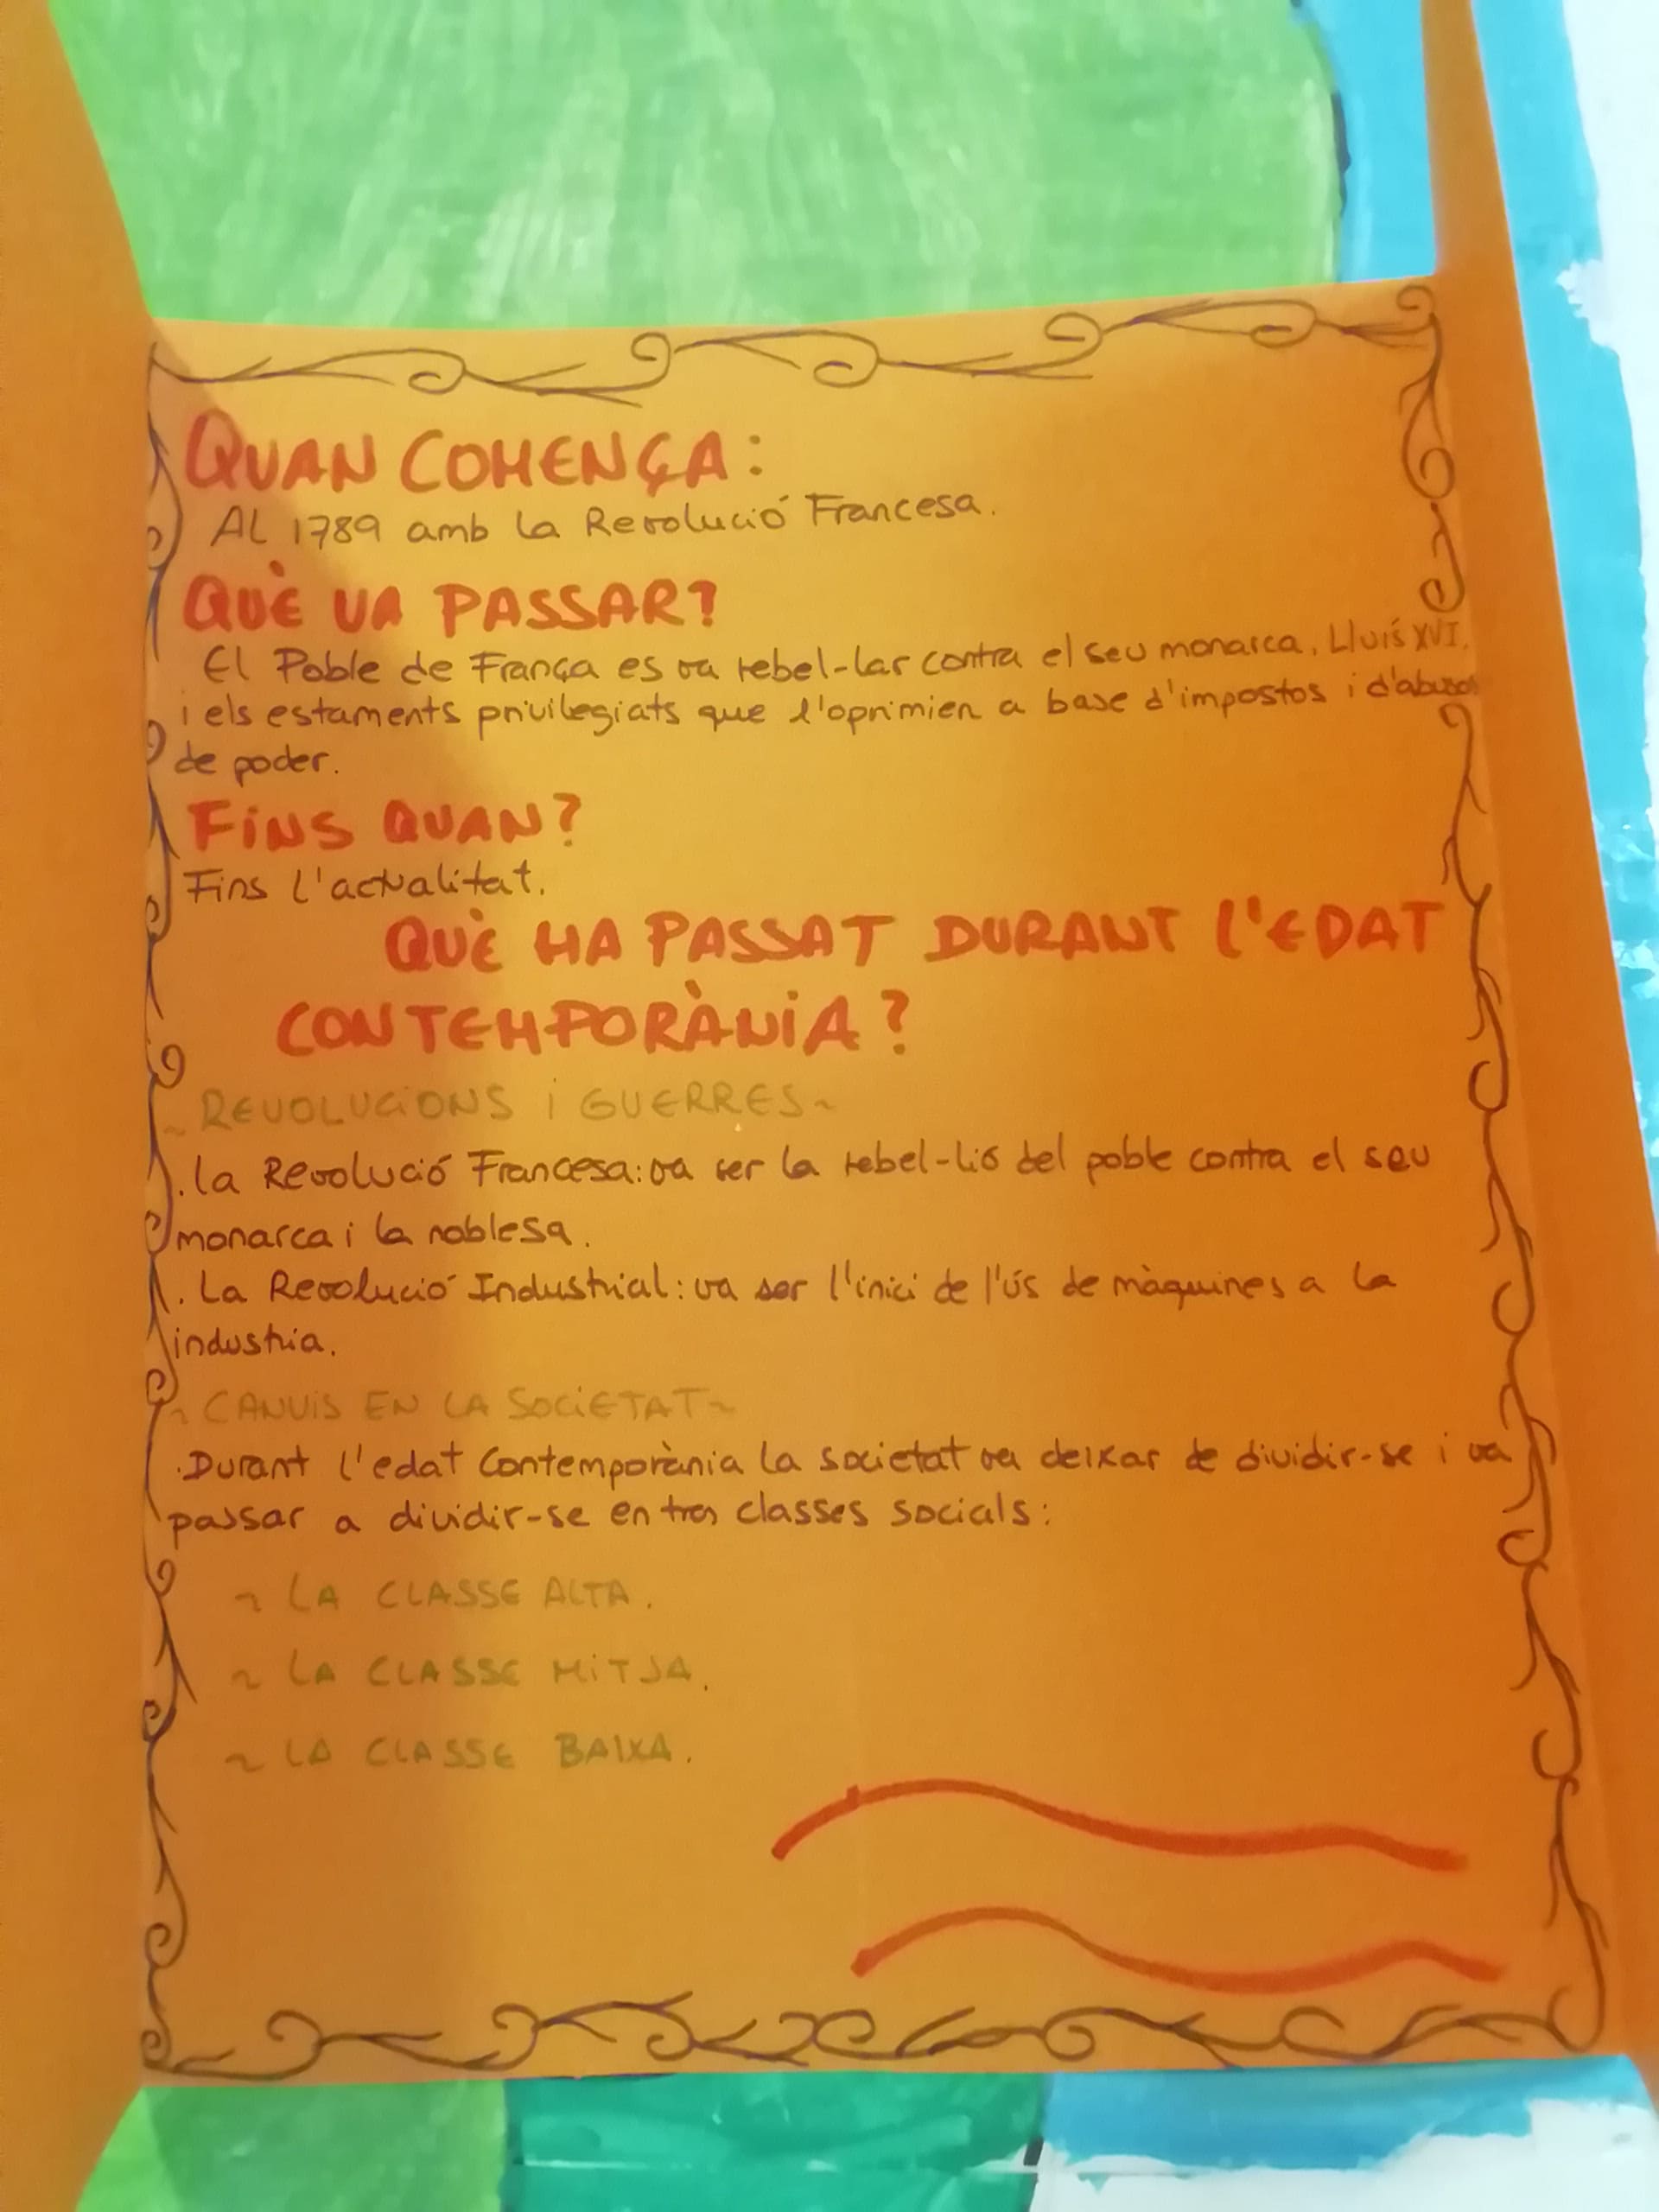 QUAN COMENÇA:
AL 1789 amb la Revolució Francesa.
QUÈ VA PASSAR?
El Poble de França es va rebel-lar contra el seu monarca, Lluís XVI,
i els estaments privilegiats que l'oprimien a base d'impostos i d'abusos
de poder.
FiNS QUAN?
Fins l'actualitat.
QUÈ HA PASSAT DURANT L'EDAT
CONTEMPORÀNiA?
~ REVOLUCiONS i GUERRES~
. La Revolució Francesa: va ser la rebel-lió del poble contra el seu
monarca i la noblesa.
. La Revolució Industrial: va ser l'inici de l'ús de màquines a la
industria.
~ CANVIS EN LA SOCiETAT~
. Durant l'edat Contemporània la societat va deixar de dividir-se i va
passar a dividir-se en tres classes socials:
~ LA CLASSE ALTA.
~ LA CLASSE MiTJA.
~ LA CLASSE BAIXA.